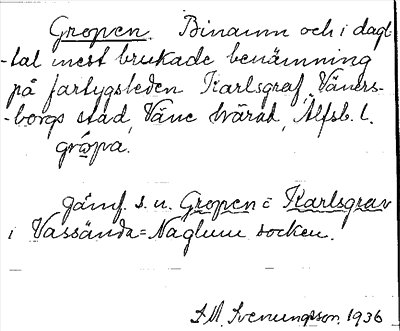 Gropen. Binamn och i dagl-
-tal mest brukade benämning
på farlygsleden Karlsgraf, Väners-
-borgs stad, Väne härad, Älfsb. l.
grópa.
Jämf. s. u. Gropen = Karlsgrav
i Vassända=Naglum socken.
S. M. Svenungsson. 1936